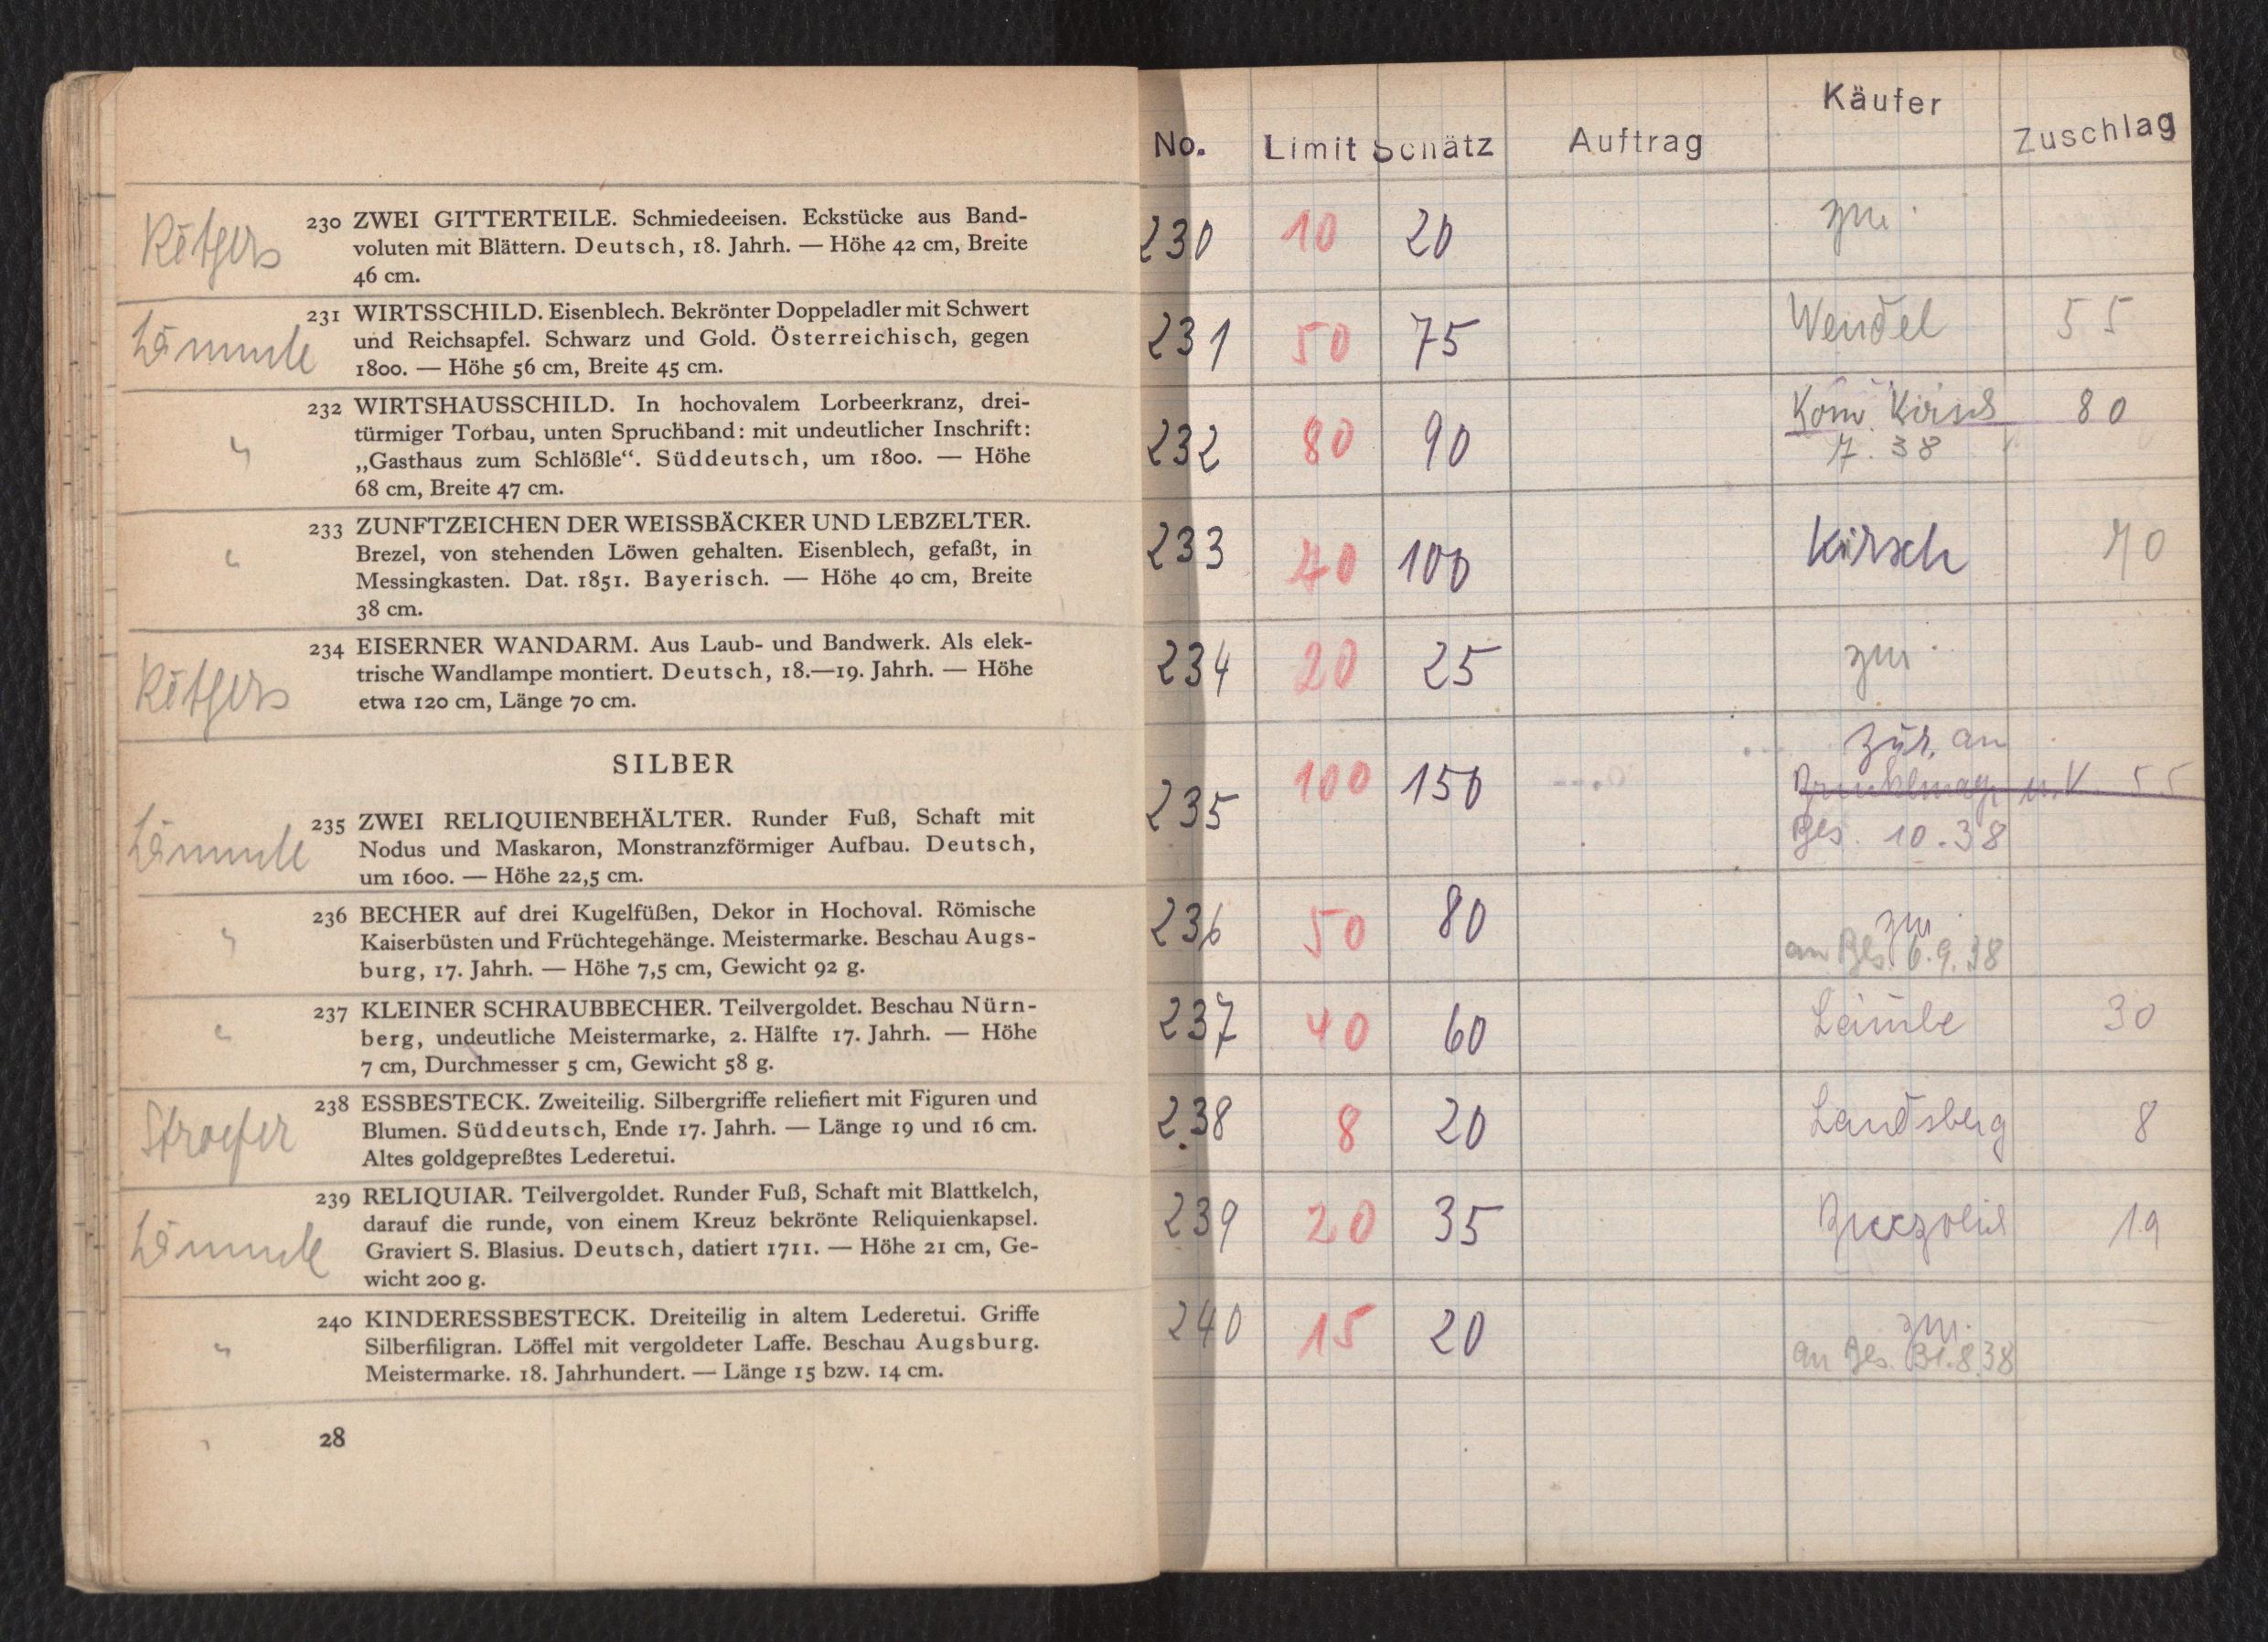 Lämmle
230 ZWEI GITTERTEILE. Schmiedeeisen. Eckstücke aus Band-
voluten mit Blättern. Deutsch, 18. Jahrh. — Höhe 42 cm, Breite
46 cm.
231 WIRTSSCHILD. Eisenblech. Bekrönter Doppeladler mit Schwert
und Reichsapfel. Schwarz und Gold. Österreichisch, gegen
1800. — Höhe 56 cm, Breite 45 cm.
232 WIRTSHAUSSCHILD. In hochovalem Lorbeerkranz, drei-
türmiger Torbau, unten Spruchband: mit undeutlicher Inschrift:
„Gasthaus zum Schlößle“. Süddeutsch, um 1800. — Höhe
68 cm, Breite 47 cm.
233 ZUNFTZEICHEN DER WEISSBÄCKER UND LEBZELTER.
Brezel, von stehenden Löwen gehalten. Eisenblech, gefaßt, in
Messingkasten. Dat. 1851. Bayerisch. — Höhe 40 cm, Breite
38 cm.
234 EISERNER WANDARM. Aus Laub- und Bandwerk. Als elek-
trische Wandlampe montiert. Deutsch, 18.—19. Jahrh. — Höhe
etwa 120 cm, Länge 70 cm.
SILBER
Lämmle
235 ZWEI RELIQUIENBEHÄLTER. Runder Fuß, Schaft mit
Nodus und Maskaron, Monstranzförmiger Aufbau. Deutsch,
um 1600. — Höhe 22,5 cm.
236 BECHER auf drei Kugelfüßen, Dekor in Hochoval. Römische
Kaiserbüsten und Früchtegehänge. Meistermarke. Beschau Augs-
burg, 17. Jahrh. — Höhe 7,5 cm, Gewicht 92 g.
237 KLEINER SCHRAUBBECHER. Teilvergoldet. Beschau Nürn-
berg, undeutliche Meistermarke, 2. Hälfte 17. Jahrh. — Höhe
7 cm, Durchmesser 5 cm, Gewicht 58 g.
Stroefer
238 ESSBESTECK. Zweiteilig. Silbergriffe reliefiert mit Figuren und
Blumen. Süddeutsch, Ende 17. Jahrh. — Länge 19 und 16 cm.
Altes goldgepreßtes Lederetui.
Lämmle
239 RELIQUIAR. Teilvergoldet. Runder Fuß, Schaft mit Blattkelch,
darauf die runde, von einem Kreuz bekrönte Reliquienkapsel.
Graviert S. Blasius. Deutsch, datiert 1711. — Höhe 21 cm, Ge-
wicht 200 g.
240 KINDERESSBESTECK. Dreiteilig in altem Lederetui. Griffe
Silberfiligran. Löffel mit vergoldeter Laffe. Beschau Augsburg.
Meistermarke. 18. Jahrhundert. — Länge 15 bzw. 14 cm.
28
No. Limit Schätz Auftrag Käufer Zuschlag
230 10 20 zur.
231 50 75 Wendel 55
232 80 90 Kom. Kirsch 80
7. 38
233 70 100 Kirsch 70
234 20 25 zur.
235 100 150 zur. an
u. V. 55
Bes. 10.38
236 50 80 zur.
an Bes. 6.9.38
237 40 60 30
238 8 20 Landsberg 8
239 20 35 19
240 15 20 zur.
an Bes. 31.8.38